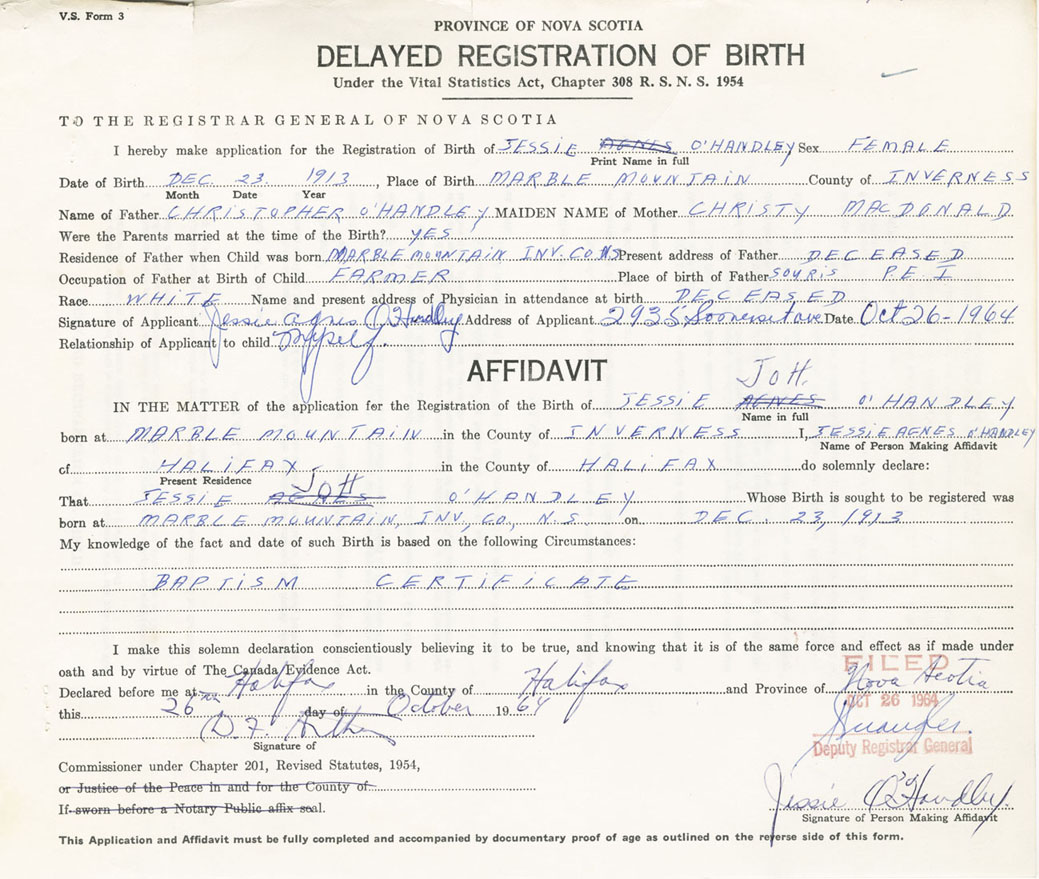 V.S. Form 3
PROVINCE OF NOVA SCOTIA
DELAYED REGISTRATION OF BIRTH
Under the Vital Statistics Act, Chapter 308 R. S. N. S. 1954
TO THE REGISTRAR GENERAL OF NOVA SCOTIA
I hereby make application for the Registration of Birth of JESSIE AGNES O'HANDLEY Sex FEMALE
Print Name in full
Date of Birth DEC. 23. 1913, Place of Birth MARBLE MOUNTAIN County of INVERNESS
Month Date Year
Name of Father CHRISTOPHER O'HANDLEY MAIDEN NAME of Mother CHRISTY MACDONALD
Were the Parents married at the time of the Birth? YES
Residence of Father when Child was born MARBLE MOUNTAIN INV. CO. NS Present address of Father DECEASED
Occupation of Father at Birth of Child FARMER Place of birth of Father SOURIS P.E.I
Race WHITE Name and present address of Physician in attendance at birth DECEASED
Signature of Applicant Jessie Agnes O'Handley Address of Applicant 2935 Date Oct 26-1964
Relationship of Applicant to child myself.
AFFIDAVIT
JoH.
IN THE MATTER of the application for the Registration of the Birth of JESSIE AGNES O'HANDLEY
Name in full
born at MARBLE MOUNTAIN in the County of INVERNESS I, JESSIE AGNES O'HANDLEY
Name of Person Making Affidavit
of HALIFAX in the County of HALIFAX do solemnly declare:
Present Residence
JoH
That JESSIE AGNES O'HANDLEY Whose Birth is sought to be registered was
born at MARBLE MOUNTAIN, INV. CO., N.S. on DEC. 23, 1913
My knowledge of the fact and date of such Birth is based on the following Circumstances:
BAPTISM CERTIFICATE
I make this solemn declaration conscientiously believing it to be true, and knowing that it is of the same force and effect as if made under
oath and by virtue of The Canada Evidence Act.
FILED
Declared before me at Halifax in the County of Halifax and Province of Nova Scotia
this 26th day of October 1964
OCT 26 1964
D.F.
Signature of
Deputy Registrar General
Commissioner under Chapter 201, Revised Statutes, 1954,
or Justice of the Peace in and for the County of
Jessie O'Handley.
If sworn before a Notary Public affix seal.
Signature of Person Making Affidavit
This Application and Affidavit must be fully completed and accompanied by documentary proof of age as outlined on the reverse side of this form.